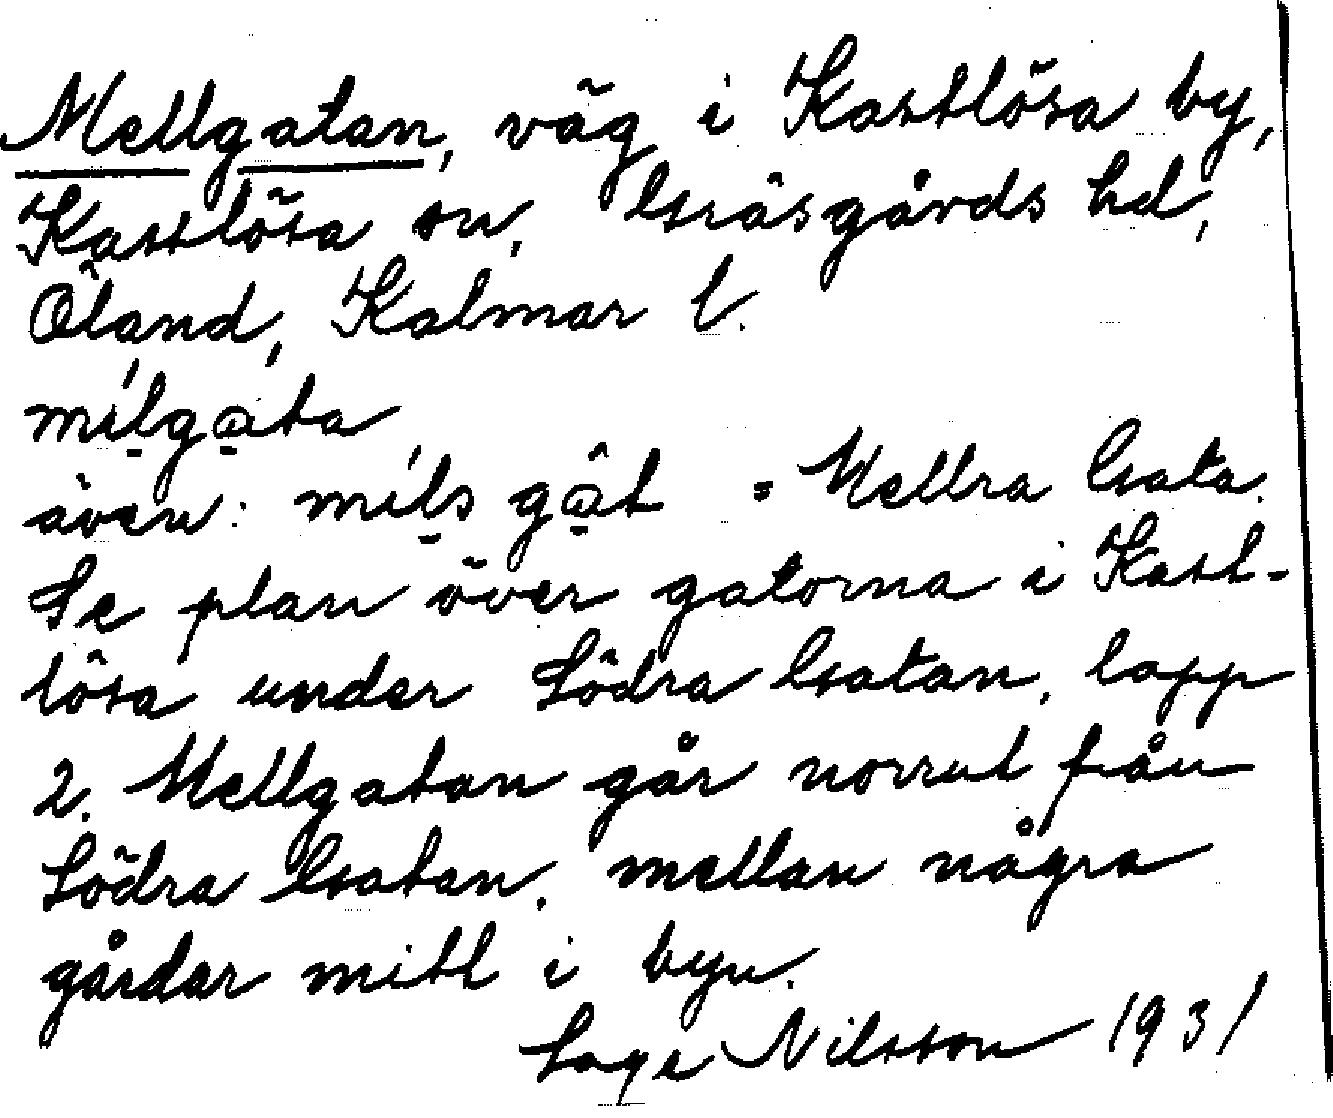 Mellgatan, väg i Kastlösa by,
Kastlösa sn, Gräsgårds hd,
Öland, Kalmar l.
milgata
även: mils gat = Mellra Gata.
Se plan över gatorna i Kast-
lösa under Södra Gatan, lapp
2. Mellgatan går norrut från
Södra Gatan, mellan några
gårdar mitt i byn.
Nilsson 1931